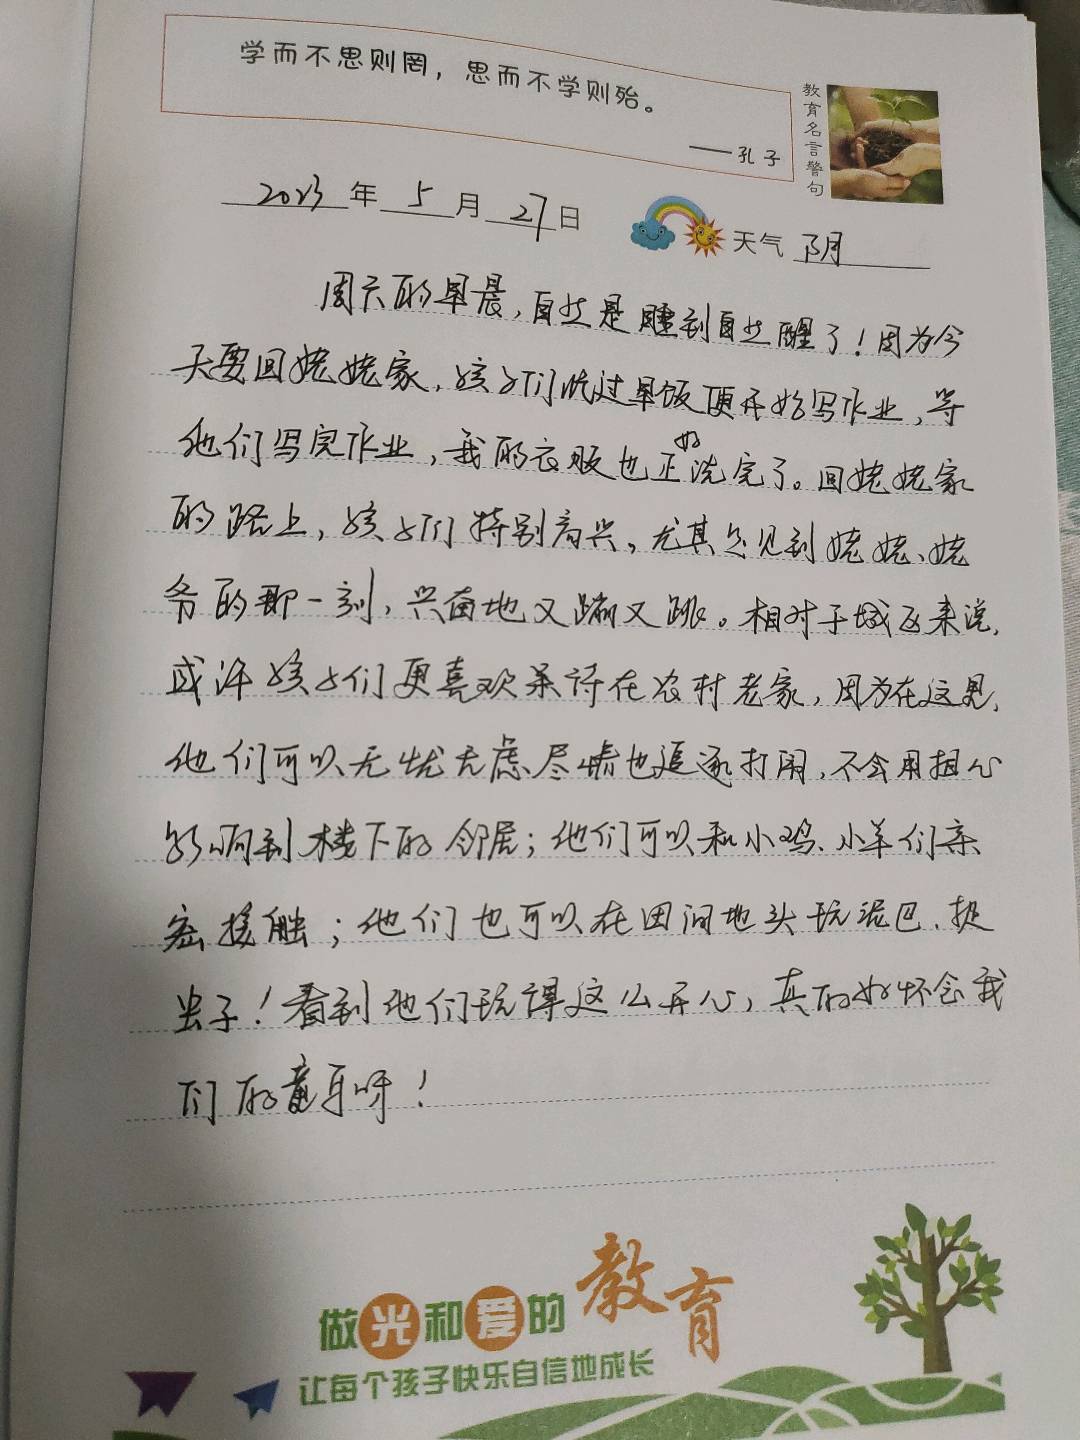 学而不思则罔，思而不学则殆。
——孔子
教育名言警句
2023年5月27日
天气 阴
周天的早晨，自然是睡到自然醒了！因为今
天要回姥姥家，孩子们吃过早饭便开始写作业，等
他们写完作业，我的衣服也正好洗完了。回姥姥家
的路上，孩子们特别高兴，尤其是见到姥姥、姥
爷的那一刻，兴奋地又蹦又跳。相对于城区来说，
或许孩子们更喜欢待在农村老家，因为在这里，
他们可以无忧无虑、尽情地追逐打闹，不会用担心
影响到楼下的邻居；他们可以和小鸡、小羊们亲
密接触；他们也可以在田间地头玩泥巴、捉
虫子！看到他们玩得这么开心，真的好怀念我
们的童年呀！
做光和爱的教育
让每个孩子快乐自信地成长